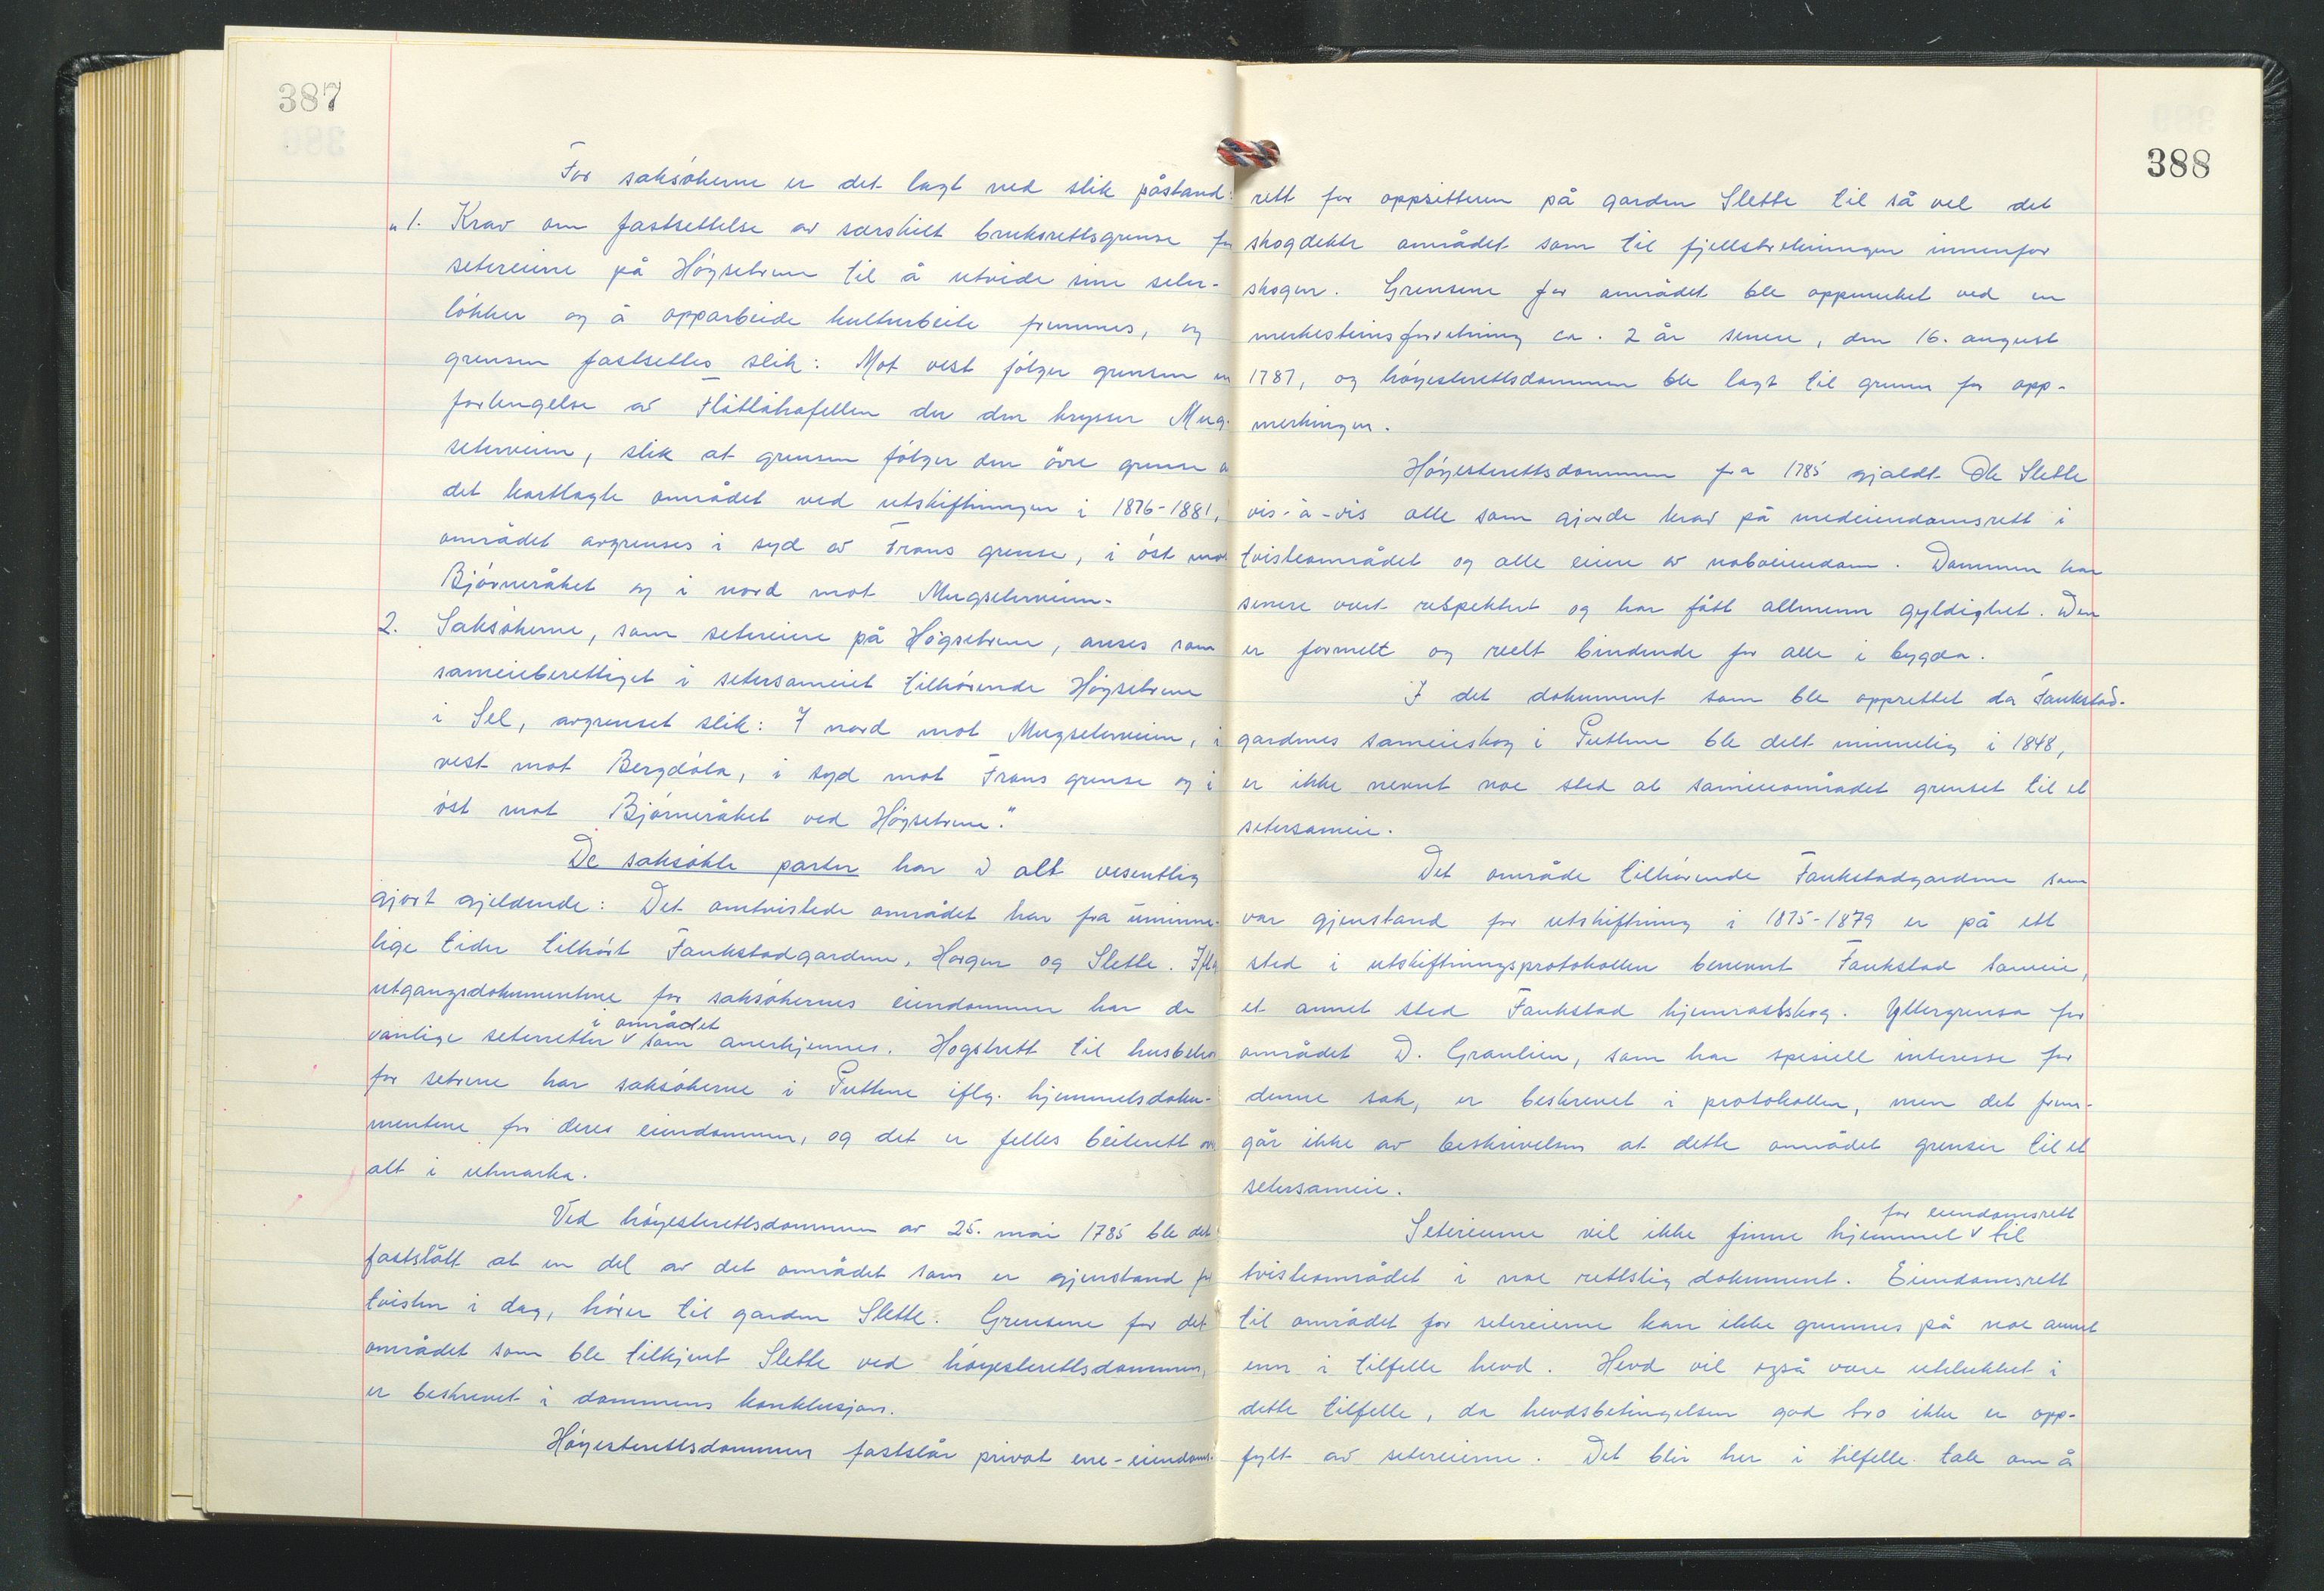 387
For saksökerne er det lagt ned slik påstand:
„1. Krav om fastsettelse av særskilt bruksrettsgrense for
setereierne på Högsetrene til å utvide sine seter-
lökker og å opparbeide kulturbeite fremmes, og
grensen fastsettes slik: Mot vest fölger grensen en
forlengelse av Flåtlåhafellen der den krysser Mug-
seterveien, slik at grensen fölger den övre grense av
det kartlagte området ved utskiftningen i 1876-1881,
området avgrenses i syd av Frons grense, i öst mot
Björneråket og i nord mot Mugseterveien.
2. Saksökerne, som setereiere på Högsetrene, anses som
sameieberettiget i setersameiet tilhörende Högsetrene
i Sel, avgrenset slik: I nord mot Mugseterveien, i
vest mot Bergdöla, i syd mot Frons grense og i
öst mot Björneråket ved Högsetrene."
De saksökte parter har i alt vesentlig
gjort gjeldende: Det omtvistede området har fra uminne-
lige tider tilhört Fankstadgardene, Horgen og Slette. Iflg.
utgangsdokumentene for saksökernes eiendommer har de
vanlige seterretter i området som anerkjennes. Hogstrett til husbehov
for setrene har saksökerne i Puttene iflg. hjemmelsdoku-
mentene for deres eiendommer, og det er felles beiterett over
alt i utmarka.
Ved höyesterettsdommen av 25. mai 1785 ble det
fastslått at en del av det området som er gjenstand for
tvisten i dag, hörer til garden Slette. Grensene for det
området som ble tilkjent Slette ved höyesterettsdommen,
er beskrevet i dommens konklusjon.
Höyesterettsdommen fastslår privat ene-eiendoms-
388
rett for oppsitteren på garden Slette til så vel det
skogdekte området som til fjellstrekningen innenfor
skogen. Grensene for området ble oppmerket ved en
merkesteinsforretning ca. 2 år senere, den 16. august
1787, og höyesterettsdommen ble lagt til grunn for opp-
merkingen.
Höyesterettsdommen fra 1785 gjaldt Ole Slette
vis-à-vis alle som gjorde krav på medeiendomsrett i
tvisteområdet og alle eiere av naboeiendom. Dommen har
senere vært respektert og har fått allmenn gyldighet. Den
er formelt og reelt bindende for alle i bygda.
I det dokument som ble opprettet da Fankstad-
gardenes sameieskog i Puttene ble delt minnelig i 1848,
er ikke nevnt noe sted at sameieområdet grenset til et
setersameie.
Det område tilhörende Fankstadgardene som
var gjenstand for utskiftning i 1875-1879 er på ett
sted i utskiftningsprotokollen benevnt Fankstad sameie,
et annet sted Fankstad hjemrastskog. Yttergrensa for
området D. Graulien, som har spesiell interesse for
denne sak, er beskrevet i protokollen, men det frem-
går ikke av beskrivelsen at dette området grenser til et
setersameie.
Setereierne vil ikke finne hjemmel for eiendomsrett til
tvisteområdet i noe rettslig dokument. Eiendomsrett
til området for setereierne kan ikke grunnes på noe annet
enn i tilfelle hevd. Hevd vil også være utelukket i
dette tilfelle, da hevdsbetingelsen god tro ikke er opp-
fylt av setereierne. Det blir her i tilfelle tale om å